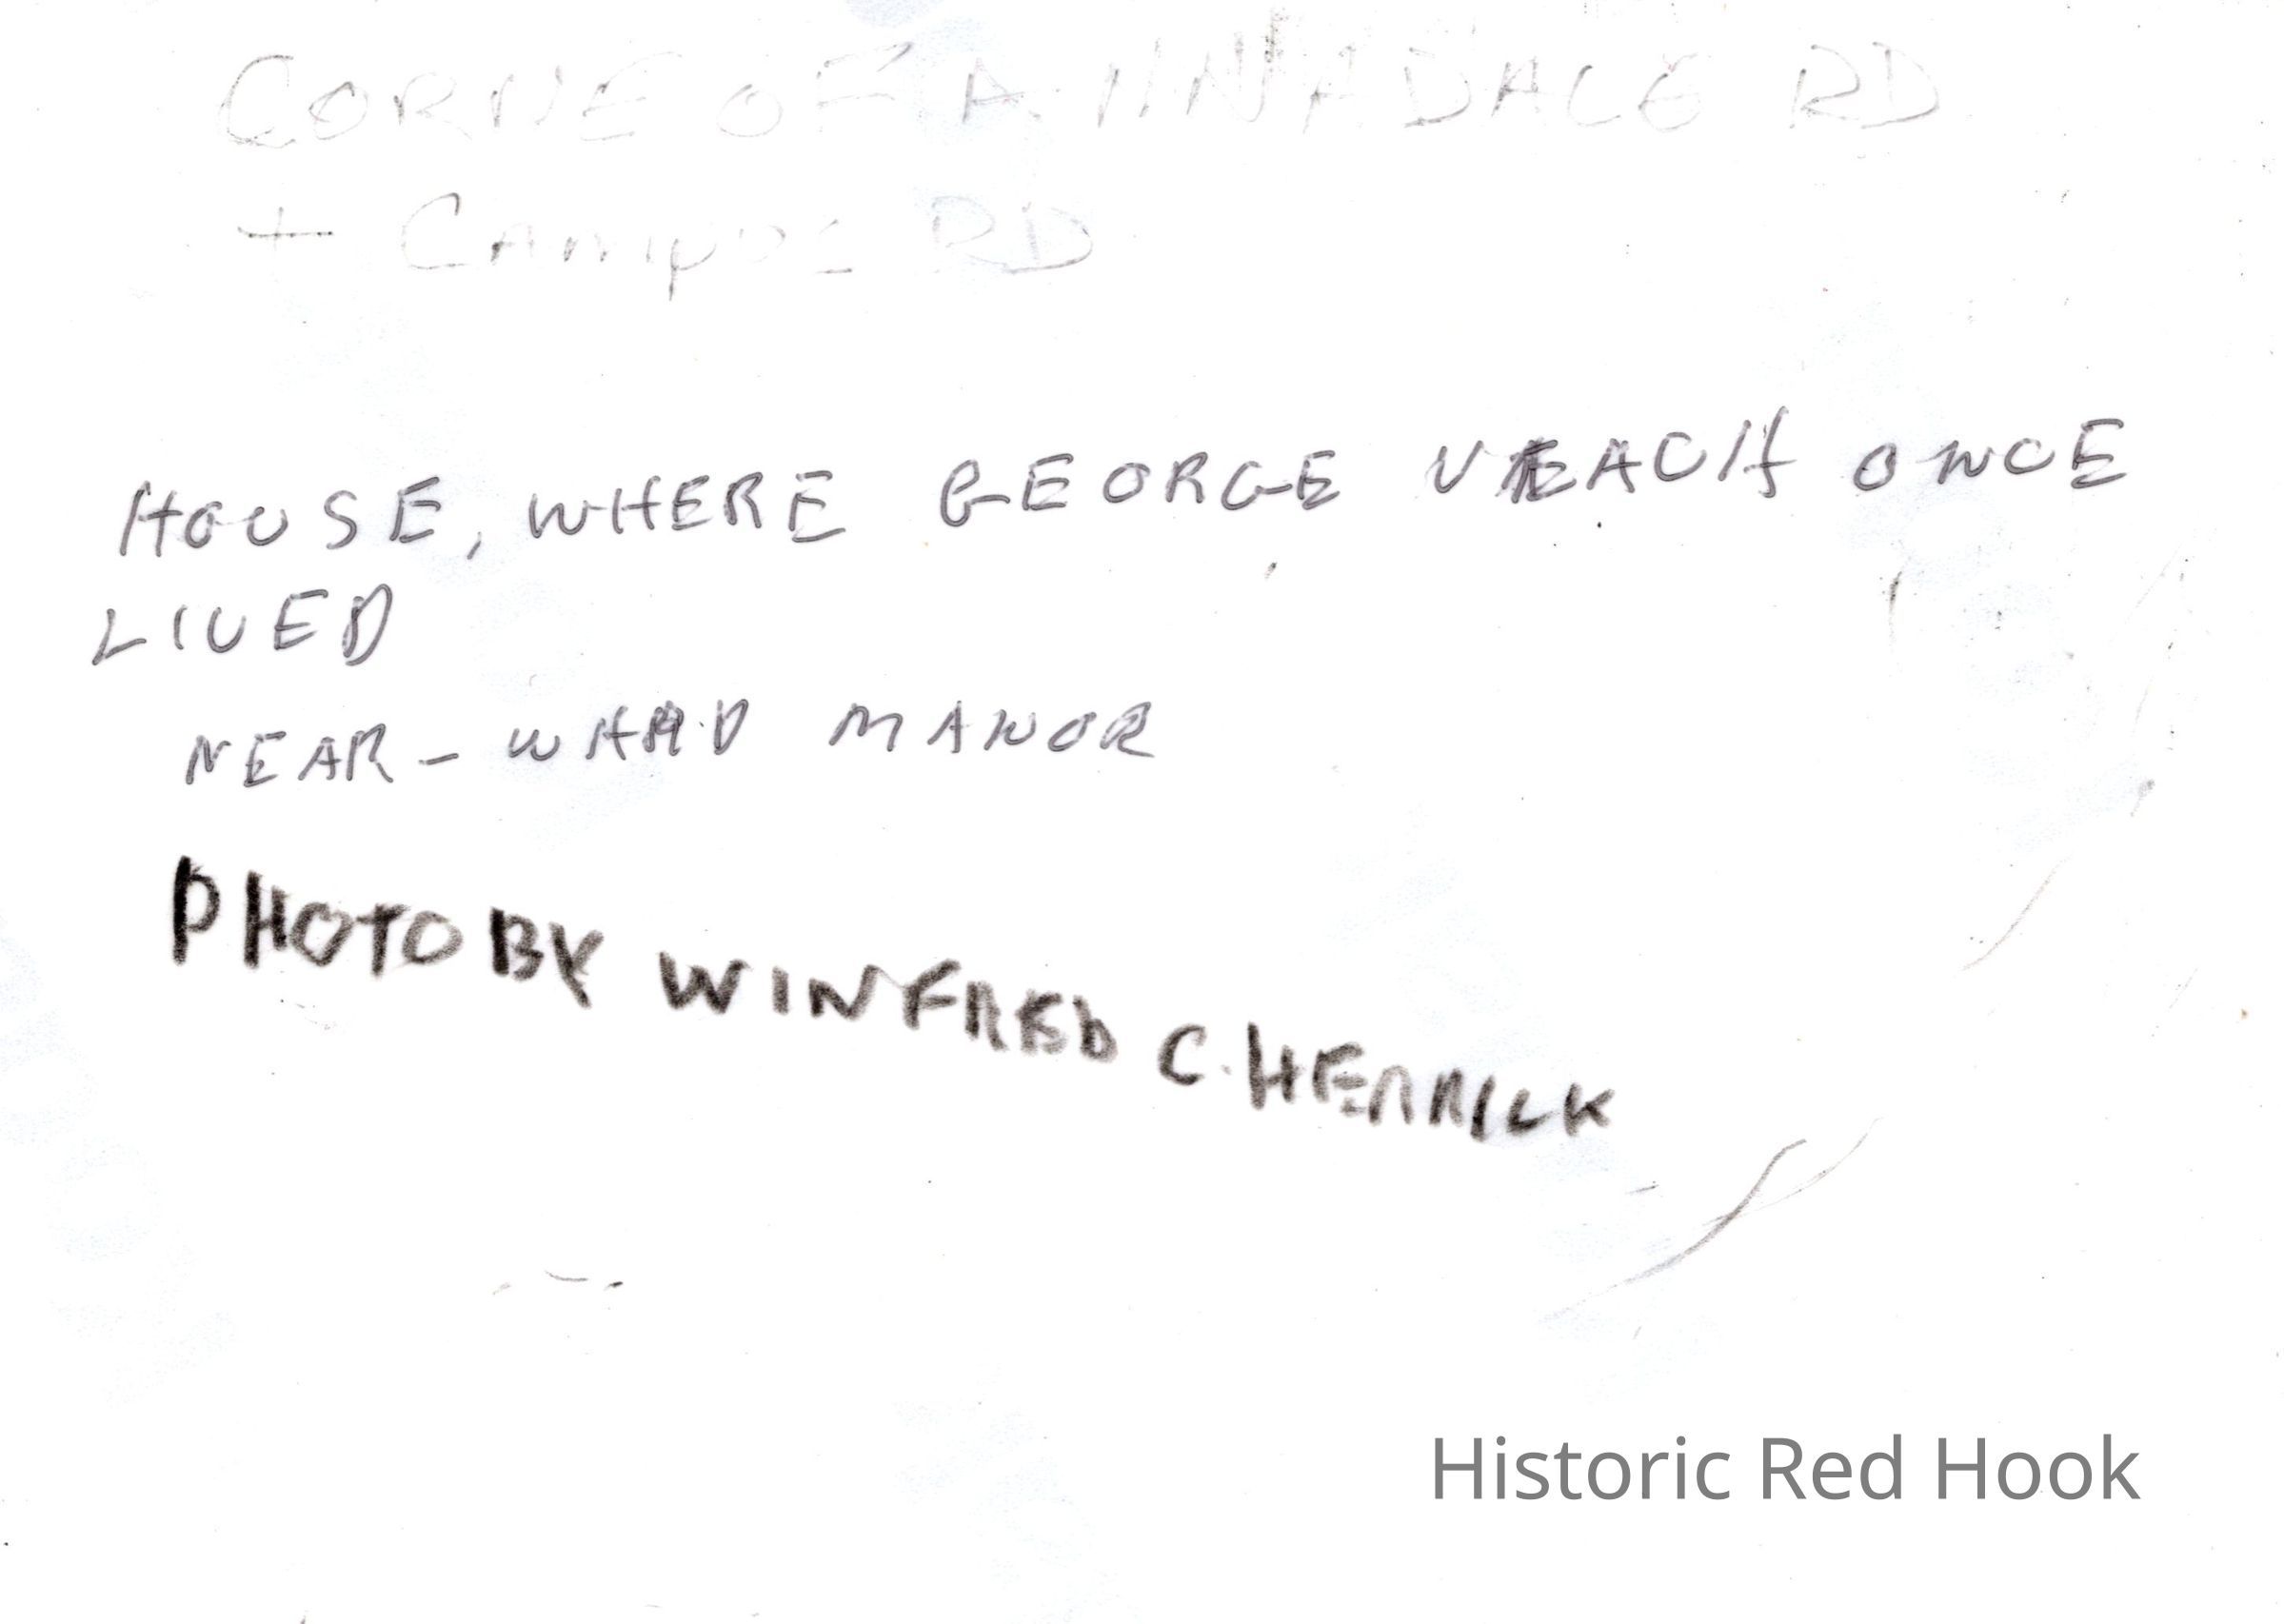 CORNE OF ANNADALE RD
+ Campus RD
HOUSE, WHERE GEORGE VEACH ONCE
LIVED
NEAR - WARD MANOR
PHOTO BY WINFRED C. HERRICK
Historic Red Hook